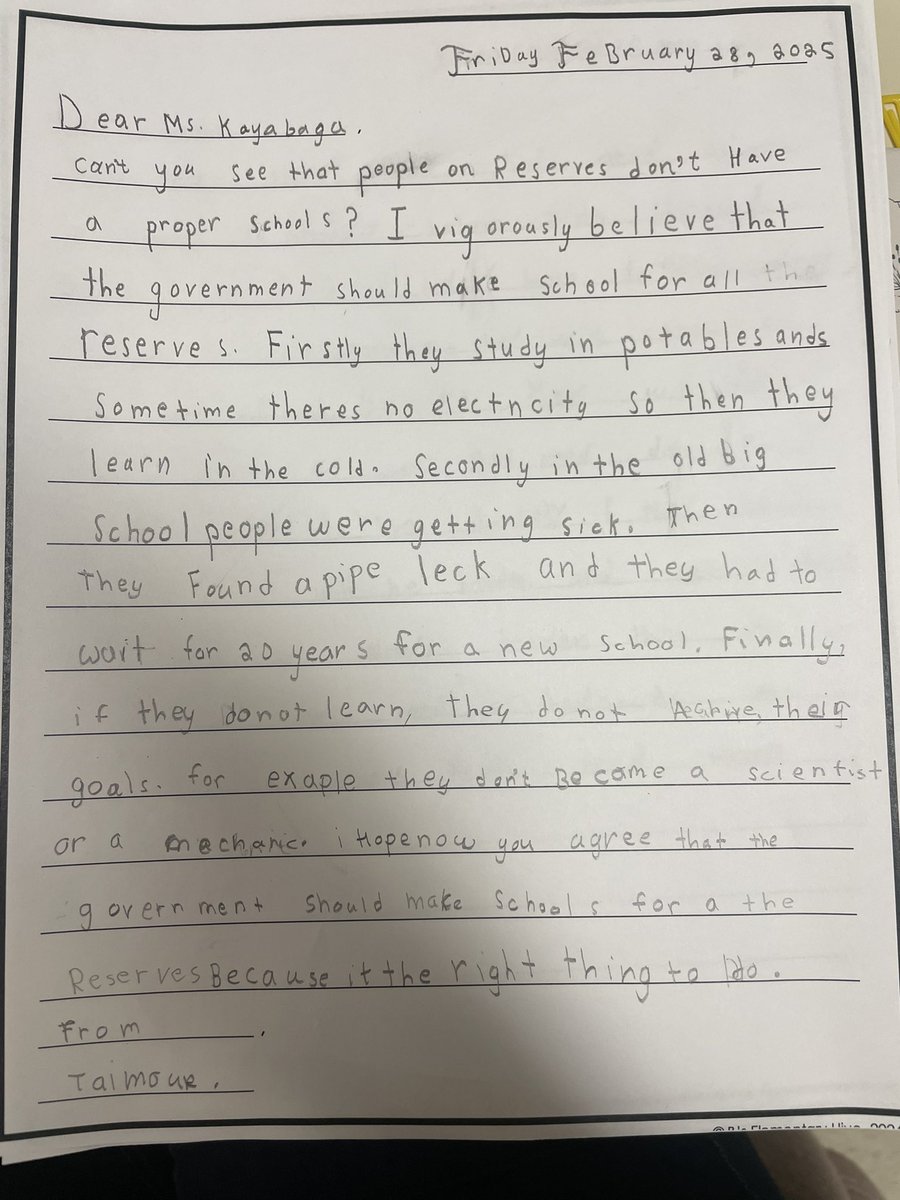 FriDay FeBruary 28, 2025
Dear Ms. Kayabaga.
can't you see that people on Reserves don't Have
a proper schools? I vigorously believe that
the government should make school for all the
reserves. Firstly they study in potables ands
Sometime theres no electricity so then they
learn in the cold. Secondly in the old big
School people were getting sick. Then
They Found a pipe leck and they had to
wait for 20 years for a new school. Finally,
if they donot learn, they do not their
goals. for exaple they don't Become a scientist
or a mechanic. i Hope now you agree that the
government should make schools for a the
Reserves Because it the right thing to Do.
From
Taimour.